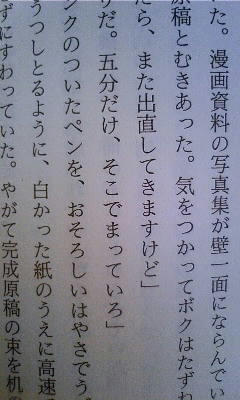 いた。漫画資料の写真集が壁一面にならんでい
原稿とむきあった。気をつかってボクはたずね
たら、また出直してきますけど」
りだ。五分だけ、そこでまっていろ」
ンクのついたペンを、おそろしいはやさでうご
うつしとるように、白かった紙のうえに高速で
ずにすわっていた。やがて完成原稿の束を机の